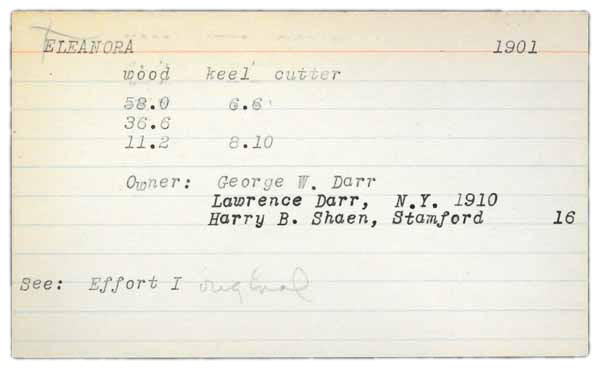 ELEANORA 1901
wood keel cutter
58.0 6.6
36.6
11.2 8.10
Owner: George W. Darr
Lawrence Darr, N.Y. 1910
Harry B. Shaen, Stamford 16
See: Effort I original